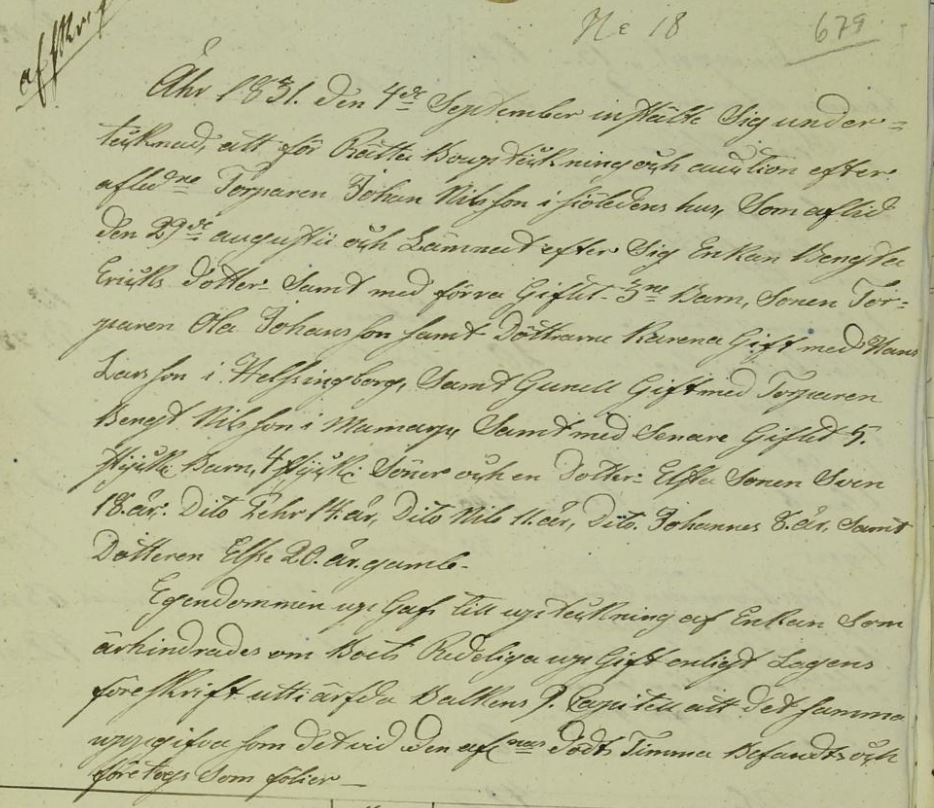 afskrift
No 18 679
År
Åhr 1831. den 4de September instälte Sig under=
tecknad, att för Rätta Boupteckning och auction efter
aflidne Torparen Johan Nilsson i hus, Som aflid
den 29de augustii och Lämnat efter Sig Enkan Bengta
Ericks dotter Samt med förra Giftet 3ne Barn, Sonen Tor=
paren Ola Johansson samt Döttrarna Karena Gift med Hans
Larsson i Helsingborg, Samt Gunell Gift med Torparen
Bengt Nilsson i Samt med Senare Giftet 5.
stycke Barn, 4 stycke Söner och en dotter Sonen Sven
18. år. Dito Pehr 14. år, Dito Nils 11. år, Dito. Johannes 8. år. Samt
Dotteren Else 20. år. gamb.
Egendommen up Gafs till upteckning af Enkan Som
ärhindrades om Boets Redeliga up Gift enligt Lagens
föreskrift utti ärfda Balkens 9. Capitell att det samma
uppgifva som det vid den afl nas Döds Timma Befandts och
företogs Som följer